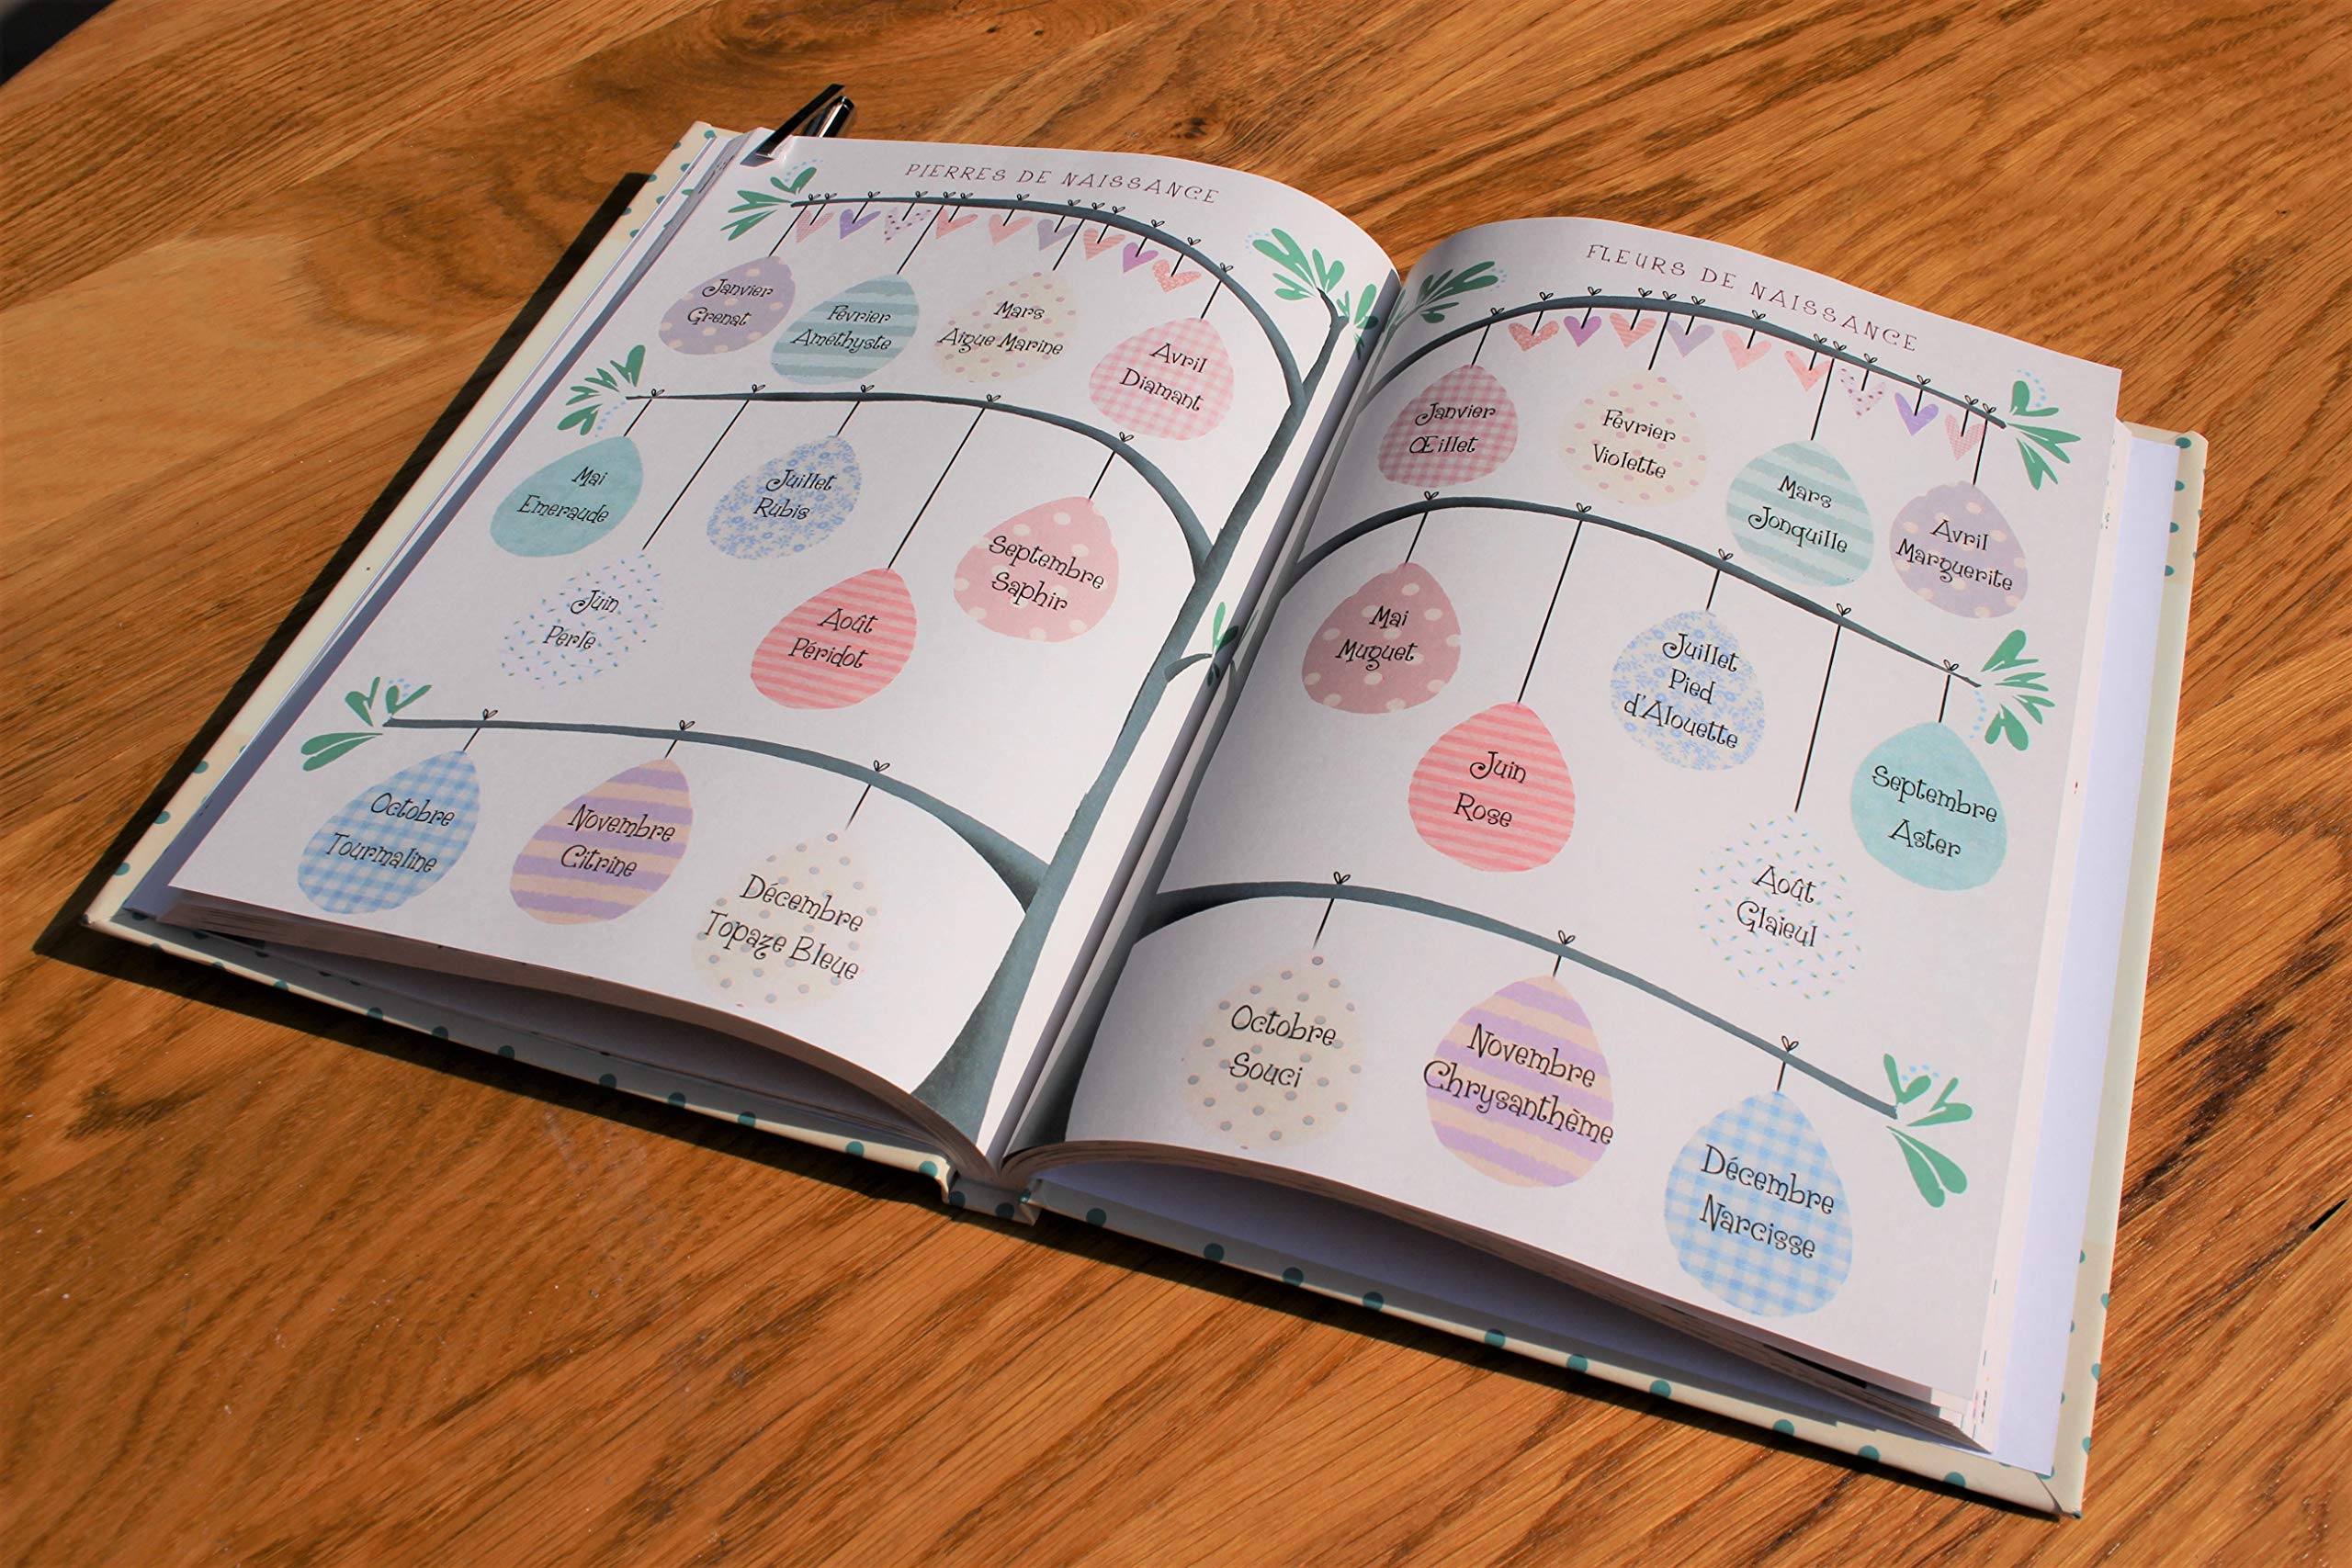 PIERRES DE NAISSANCE
Janvier
Grenat
Février
Améthyste
Mars
Aigue Marine
Avril
Diamant
Mai
Emeraude
Juin
Perle
Juillet
Rubis
Août
Péridot
Septembre
Saphir
Octobre
Tourmaline
Novembre
Citrine
Décembre
Topaze Bleue
FLEURS DE NAISSANCE
Janvier
Œillet
Février
Violette
Mars
Jonquille
Avril
Marguerite
Mai
Muguet
Juin
Rose
Juillet
Pied
d'Alouette
Août
Glaieul
Septembre
Aster
Octobre
Souci
Novembre
Chrysanthème
Décembre
Narcisse